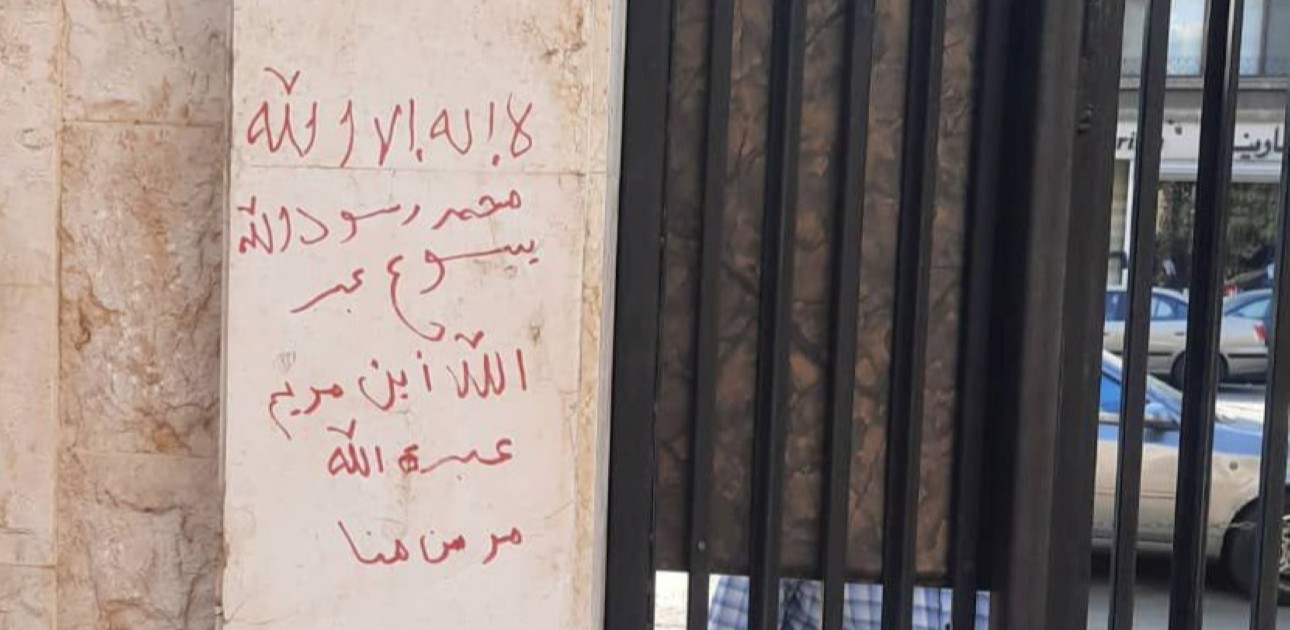 لا إله إلا الله
محمد رسول الله
يسوع عبد
الله أبن مريم
عبدة الله
مر من هنا